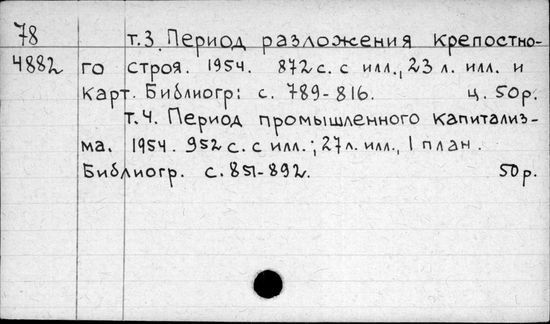 78 т.3. Период разложения крепостно-
4882 го строя. 1954. 872 с. с илл., 23 л. илл. и
карт. Библиогр: с. 789-816. ц. 50р.
т.4. Период промышленного капитализ-
ма. 1954. 952 с. с илл.; 27 л. илл., 1 план.
Библиогр. с. 851-892. 50р.